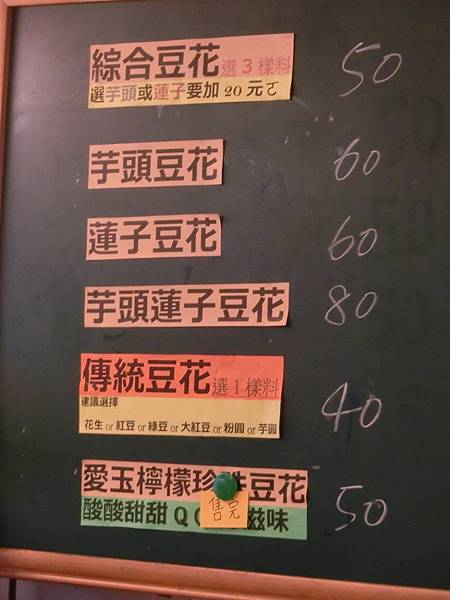 綜合豆花 選3樣料 50
選芋頭或蓮子要加 20 元ㄛ
芋頭豆花 60
蓮子豆花 60
芋頭蓮子豆花 80
傳統豆花 選1樣料 40
建議選擇
花生 or 紅豆 or 綠豆 or 大紅豆 or 粉圓 or 芋圓
愛玉檸檬珍珠豆花 50
酸酸甜甜 Q 滋味
售完